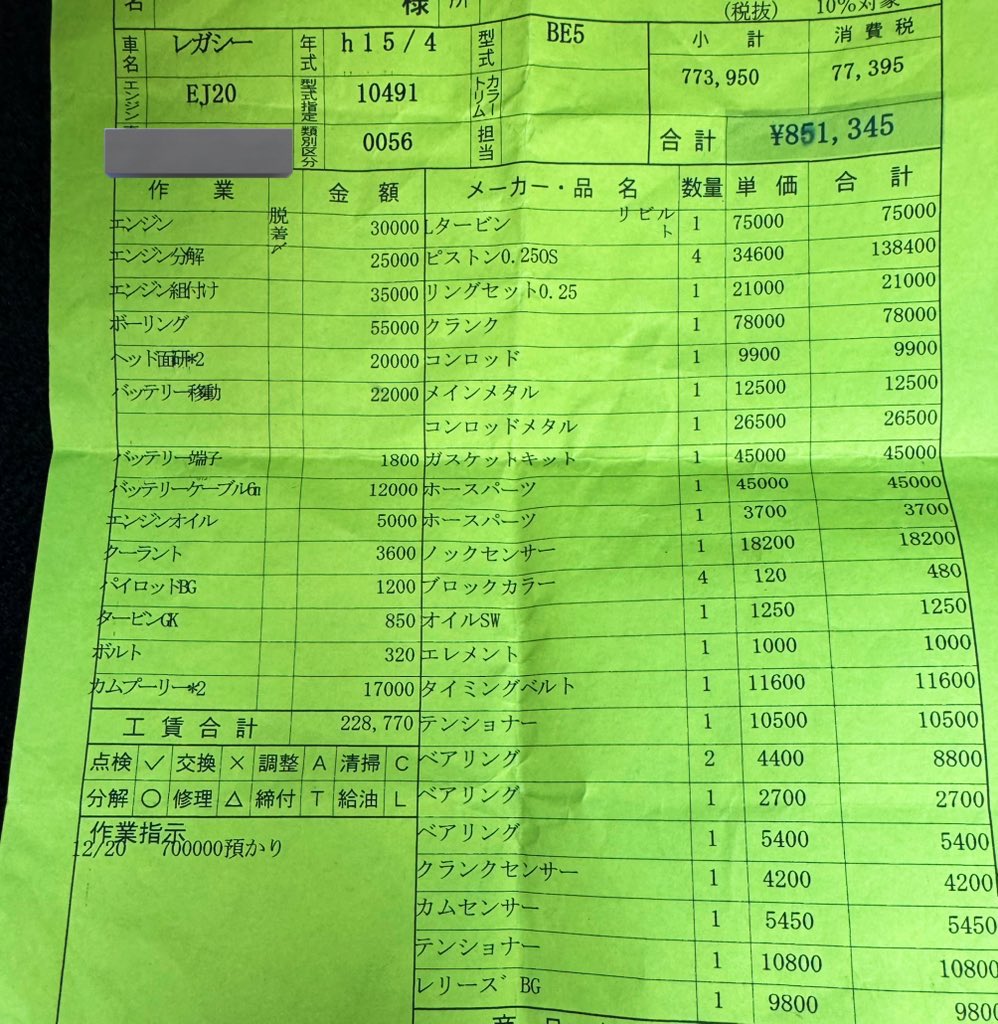 名 様 所 (税抜) 10%対象
車名 レガシー 年式 h15/4 型式 BE5 小計 消費税
773,950 77,395
エンジン EJ20 型式指定 10491 カラートリム
類別区分 0056 担当 合計 ¥851,345
作業 金額 メーカー・品名 数量 単価 合計
エンジン 脱着〆 30000 Lタービン リビルト 1 75000 75000
エンジン分解 25000 ピストン0.25OS 4 34600 138400
エンジン組付け 35000 リングセット0.25 1 21000 21000
ボーリング 55000 クランク 1 78000 78000
ヘッド面研*2 20000 コンロッド 1 9900 9900
バッテリー移動 22000 メインメタル 1 12500 12500
コンロッドメタル 1 26500 26500
バッテリー端子 1800 ガスケットキット 1 45000 45000
バッテリーケーブル6m 12000 ホースパーツ 1 45000 45000
エンジンオイル 5000 ホースパーツ 1 3700 3700
クーラント 3600 ノックセンサー 1 18200 18200
パイロットBG 1200 ブロックカラー 4 120 480
タービンGK 850 オイルSW 1 1250 1250
ボルト 320 エレメント 1 1000 1000
カムプーリー*2 17000 タイミングベルト 1 11600 11600
工賃合計 228,770 テンショナー 1 10500 10500
点検 ✓ 交換 × 調整 A 清掃 C ベアリング 2 4400 8800
分解 ○ 修理 △ 締付 T 給油 L ベアリング 1 2700 2700
作業指示 ベアリング 1 5400 5400
12/20 700000預かり クランクセンサー 1 4200 4200
カムセンサー 1 5450 5450
テンショナー 1 10800 10800
レリーズ゛BG 1 9800 9800